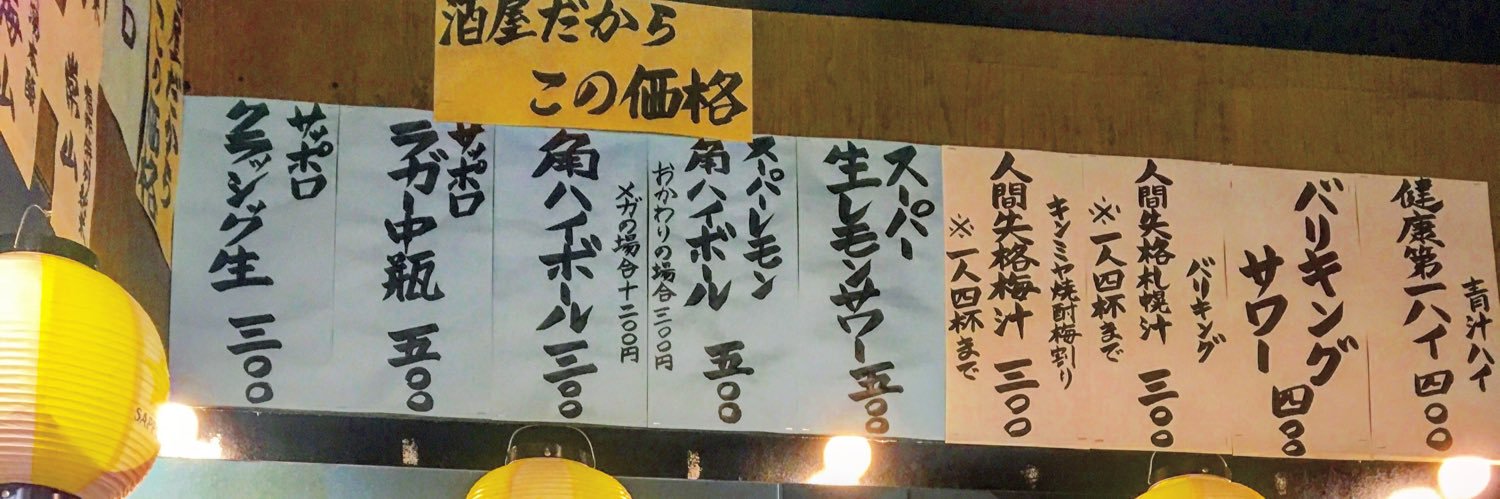 酒屋だから
この価格
青汁ハイ
健康第一ハイ 四〇〇
バリキング
サワー 四〇〇
バリキング
人間失格札幌汁 三〇〇
※一人四杯まで
キンミヤ焼酎梅割り
人間失格梅汁 三〇〇
※一人四杯まで
スーパー
生レモンサワー 五〇〇
スーパーレモン
角ハイボール 五〇〇
おかわりの場合三〇〇円
角ハイボール 三〇〇
メガの場合十二〇〇円
サッポロ
ラガー中瓶 五〇〇
サッポロ
クラッシグ生 三〇〇
屋だから
この価格